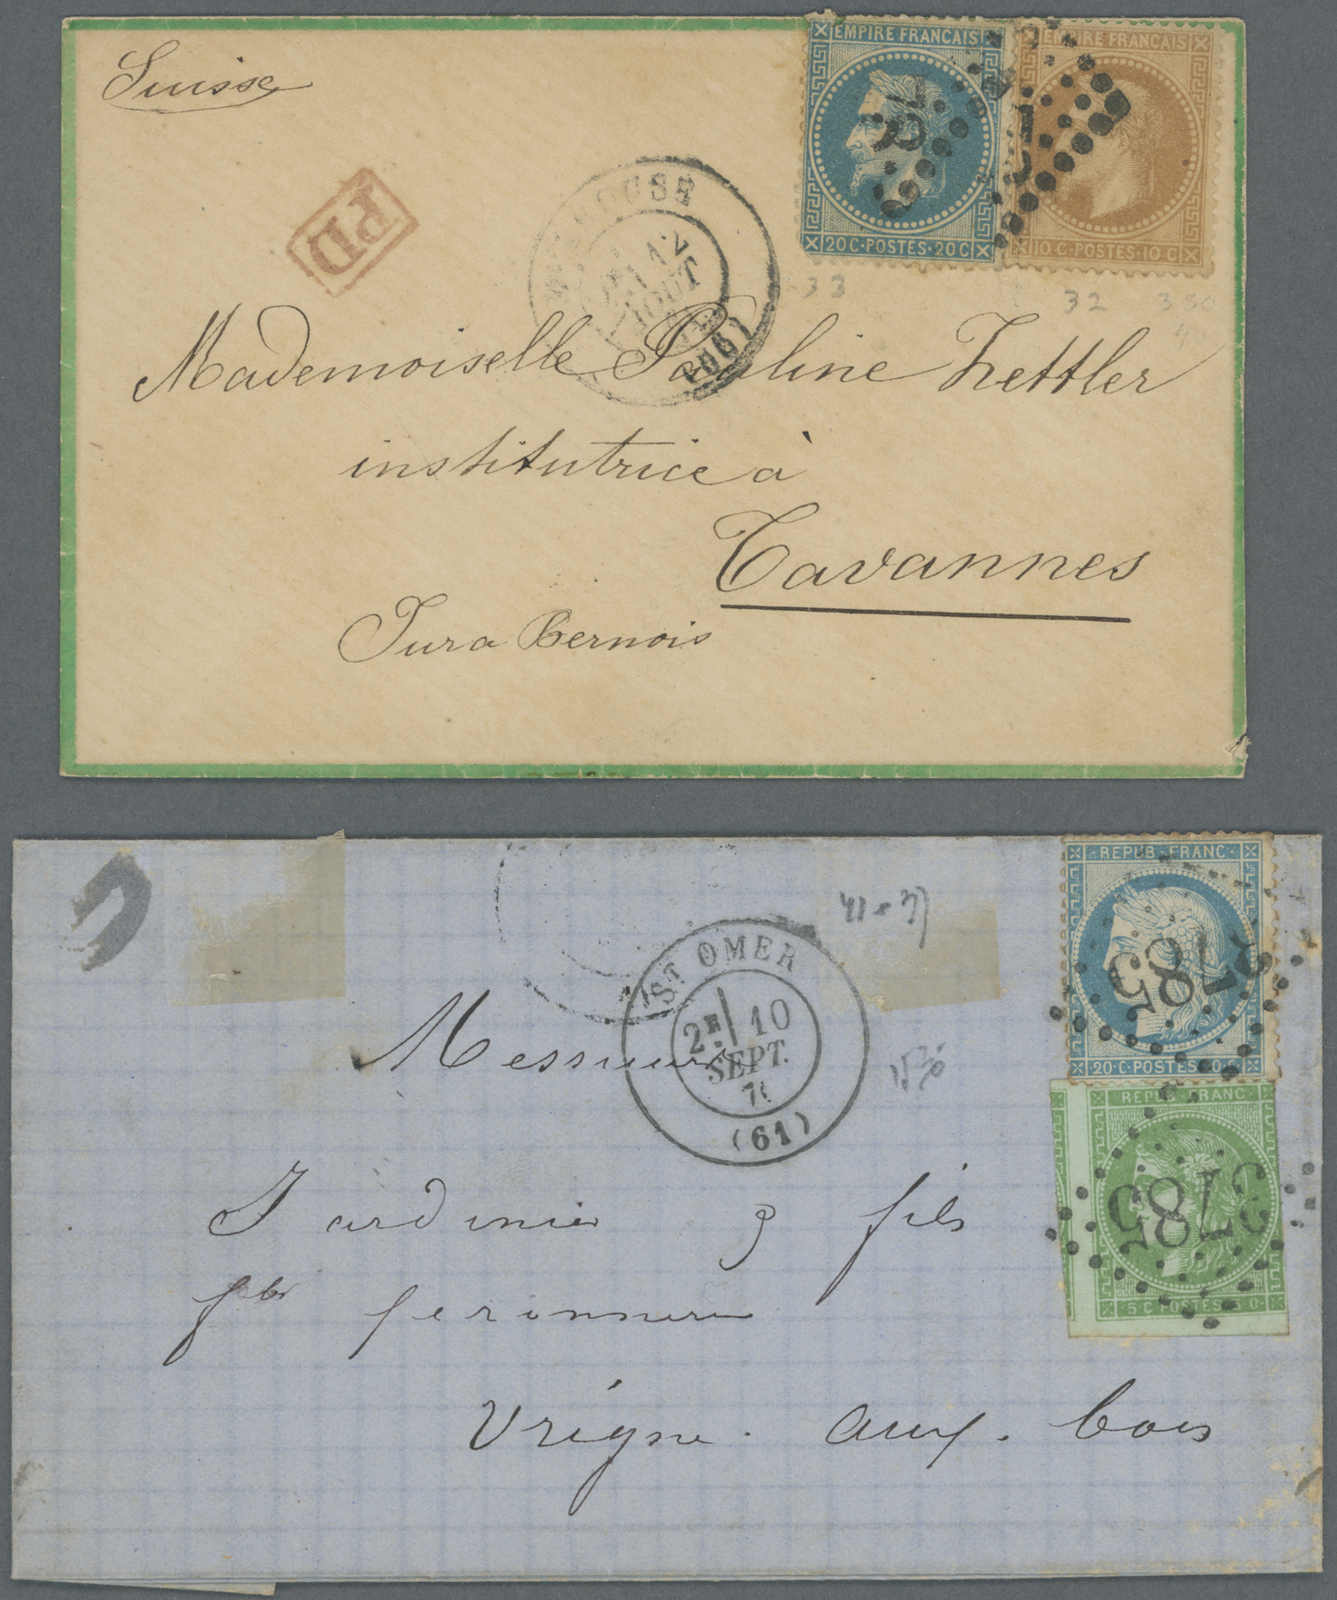 Suisse
EMPIRE FRANCAIS
20 C · POSTES · 20 C
EMPIRE FRANCAIS
10 C · POSTES · 10 C
PD
12
AOUT
(66)
33
32
Mademoiselle Pauline Zettler
institutrice à
Tavannes
Jura Bernois
REPUB · FRANC ·
20 · C · POSTES · 20 C
3785
41 + 37
ST OMER
2E 10
SEPT.
(61)
REPUB · FRANC
5 C · POSTES · 5 C
3785
Messieurs
Jardinier & fils
fbr ferronnerie
Vrigne. aux. bois